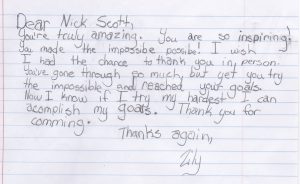 Dear Nick Scott,
You're truly amazing. You are so inspiring!
You made the impossible possible! I wish
I had the chance to thank you in person.
You've gone through so much, but yet you try
the impossible and reached your goals.
Now I know if I try my hardest I can
acomplish my goals. Thank you for
comming.
Thanks again,
Lily